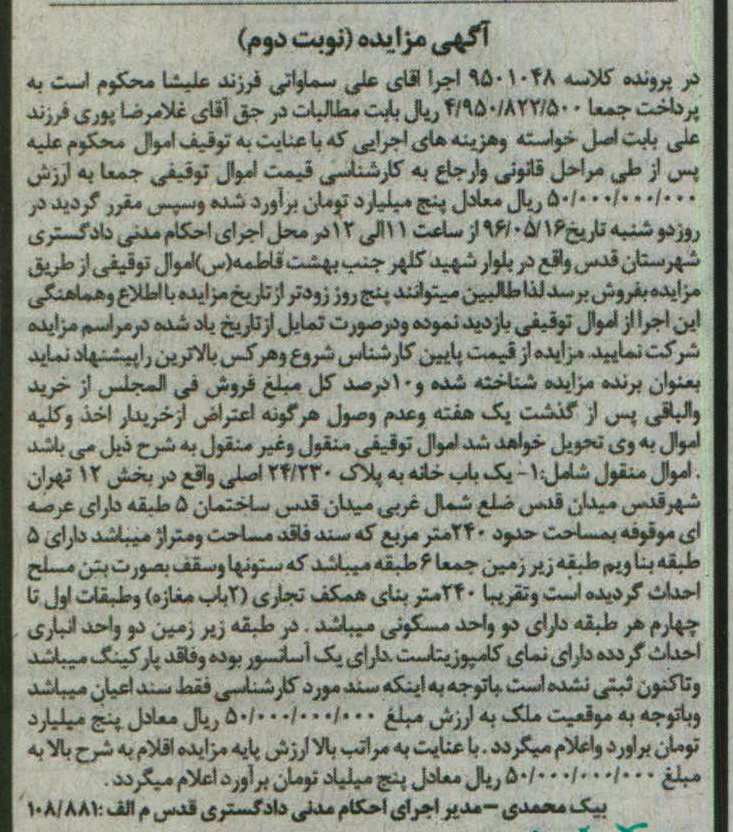 آگهی مزایده (نوبت دوم)
در پرونده کلاسه ۹۵۰۱۰۴۸ اجرا اقای علی سماواتی فرزند علیشا محکوم است به
پرداخت جمعا ۴/۹۵۰/۸۲۲/۵۰۰ ریال بابت مطالبات در حق آقای غلامرضا پوری فرزند
علی بابت اصل خواسته وهزینه های اجرایی که با عنایت به توقیف اموال محکوم علیه
پس از طی مراحل قانونی وارجاع به کارشناسی قیمت اموال توقیفی جمعا به ارزش
۵۰/۰۰۰/۰۰۰/۰۰۰ ریال معادل پنج میلیارد تومان برآورد شده وسپس مقرر گردید در
روزدو شنبه تاریخ۹۶/۰۵/۱۶ از ساعت ۱۱الی ۱۲در محل اجرای احکام مدنی دادگستری
شهرستان قدس واقع در بلوار شهید کلهر جنب بهشت فاطمه(س)اموال توقیفی از طریق
مزایده بفروش برسد لذا طالبین میتوانند پنج روز زودتر ازتاریخ مزایده با اطلاع وهماهنگی
این اجرا از اموال توقیفی بازدید نموده ودرصورت تمایل ازتاریخ یاد شده درمراسم مزایده
شرکت نمایید. مزایده از قیمت پایین کارشناس شروع وهرکس بالاترین راپیشنهاد نماید
بعنوان برنده مزایده شناخته شده و۱۰درصد کل مبلغ فروش فی المجلس از خرید
والباقی پس از گذشت یک هفته وعدم وصول هرگونه اعتراض ازخریدار اخذ وکلیه
اموال به وی تحویل خواهد شد اموال توقیفی منقول وغیر منقول به شرح ذیل می باشد
. اموال منقول شامل:۱- یک باب خانه به پلاک ۲۴/۲۳۰ اصلی واقع در بخش ۱۲ تهران
شهرقدس میدان قدس ضلع شمال غربی میدان قدس ساختمان ۵ طبقه دارای عرصه
ای موقوفه بمساحت حدود ۲۴۰متر مربع که سند فاقد مساحت ومتراژ میباشد دارای ۵
طبقه بنا ویم طبقه زیر زمین جمعا ۶ طبقه میباشد که ستونها وسقف بصورت بتن مسلح
احداث گردیده است وتقریبا ۲۴۰متر بنای همکف تجاری (۲باب مغازه) وطبقات اول تا
چهارم هر طبقه دارای دو واحد مسکونی میباشد . در طبقه زیر زمین دو واحد انباری
احداث گردده دارای نمای کامپوزیتاست.دارای یک آسانسور بوده وفاقد پارکینگ میباشد
وتاکنون ثبتی نشده است .باتوجه به اینکه سند مورد کارشناسی فقط سند اعیان میباشد
وباتوجه به موقعیت ملک به ارزش مبلغ ۵۰/۰۰۰/۰۰۰/۰۰۰ ریال معادل پنج میلیارد
تومان براورد واعلام میگردد . با عنایت به مراتب بالا ارزش پایه مزایده اقلام به شرح بالا به
مبلغ ۵۰/۰۰۰/۰۰۰/۰۰۰ ریال معادل پنج میلیاد تومان برآورد اعلام میگردد .
بیک محمدی –مدیر اجرای احکام مدنی دادگستری قدس م الف :۱۰۸/۸۸۱